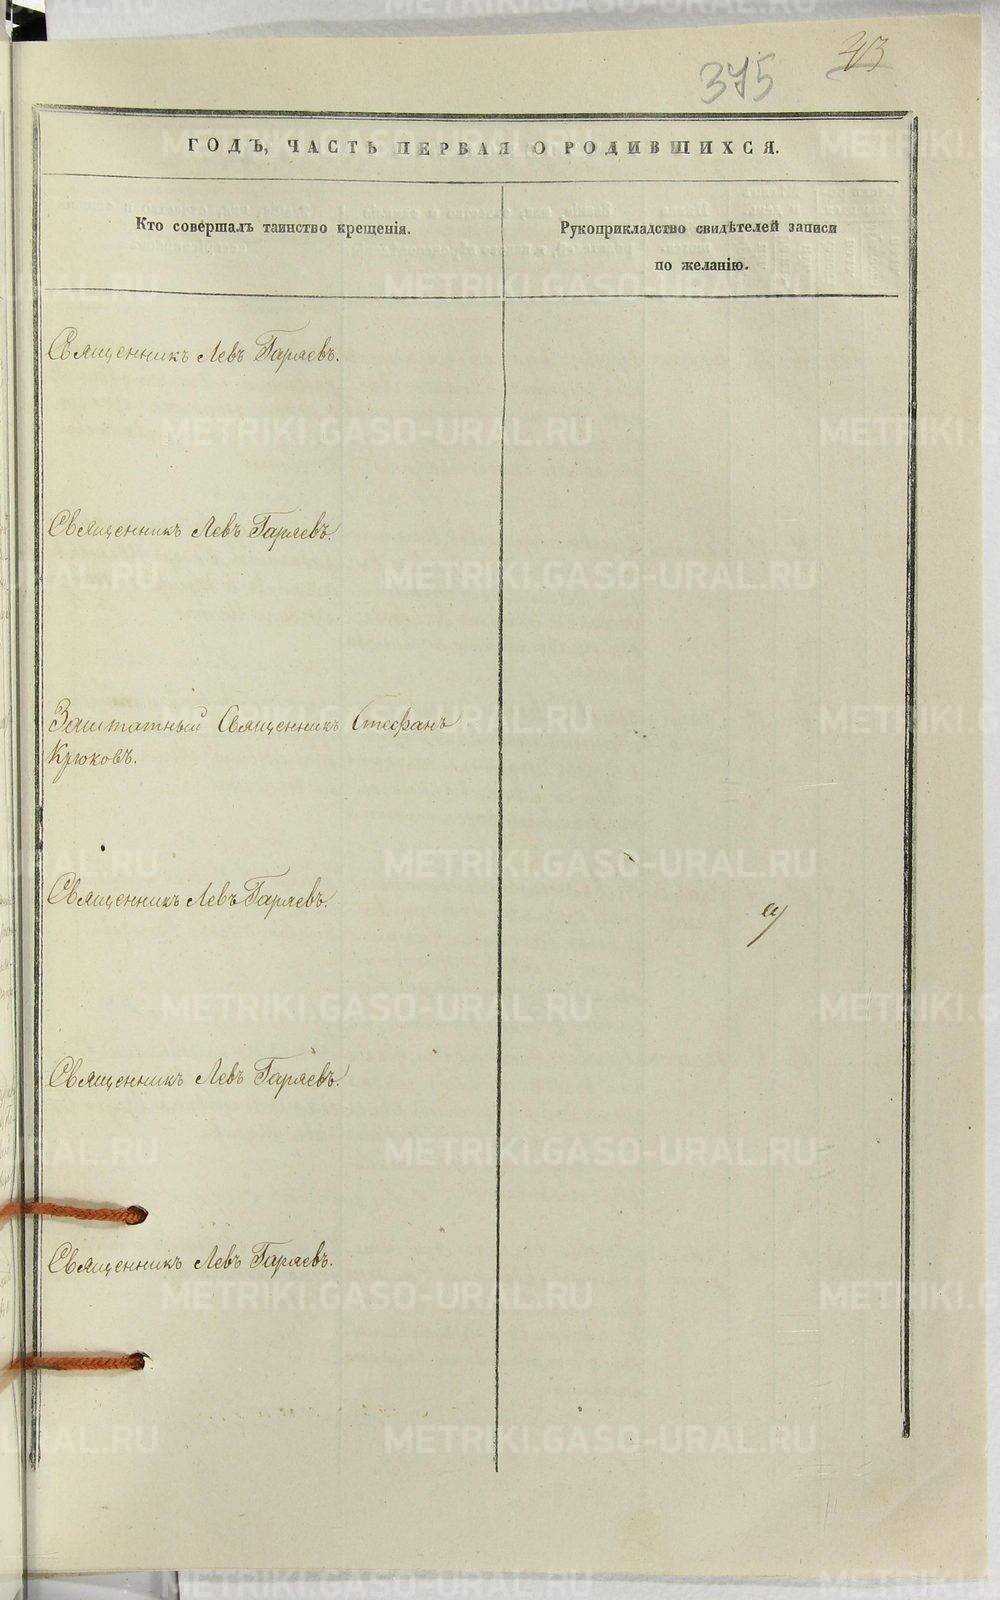 375
ГОДЪ, ЧАСТЬ ПЕРВАЯ О РОДИВШИХСЯ.
Кто совершалъ таинство крещенія.
Рукоприкладство свидѣтелей записи
по желанію.
Священникъ Левъ Гаряевъ.
Священникъ Левъ Гаряевъ.
Заштатный Священникъ Стефанъ
Крюковъ.
Священникъ Левъ Гаряевъ.
Священникъ Левъ Гаряевъ.
Священникъ Левъ Гаряевъ.
METRIKI.GASO-URAL.RU